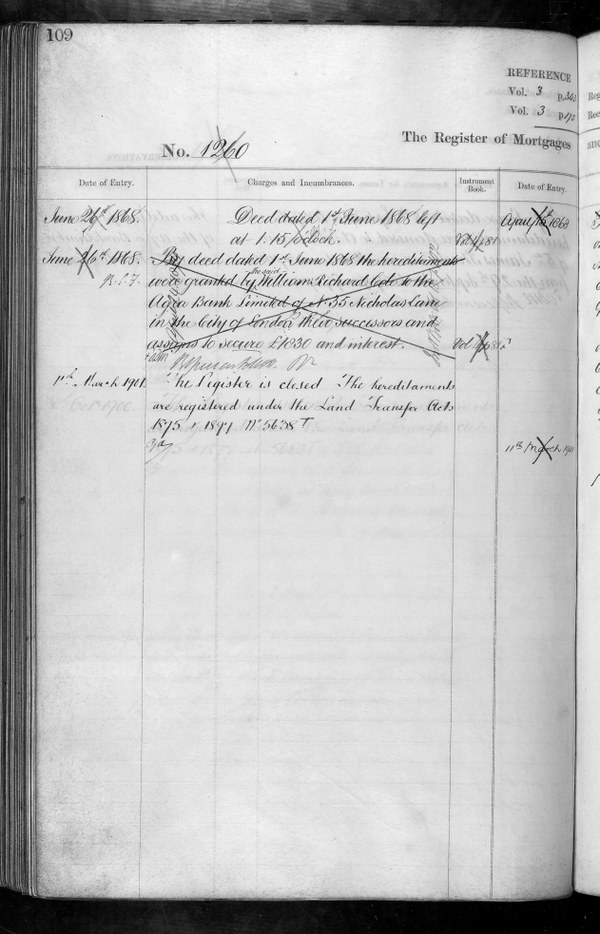 109
REFERENCE
Vol. 3 p.
Vol. 3 p.
The Register of Mortgages
No. 1260
Date of Entry. Charges and Incumbrances. Instrument Book. Date of Entry.
June 26th 1868. Deed dated 1st June 1868 left April 1868
at 1.15 o'clock.
June 26th 1868. By deed dated 1st June 1868 the hereditaments
were granted by the said William Richard Cole to the
Agra Bank Limited of No 35 Nicholas Lane
in the City of London their successors and
assigns to secure £1830 and interest.
11th March 1901. The Register is closed The hereditaments
are registered under the Land Transfer Acts
1875 & 1897 No 5638
11th March 1901